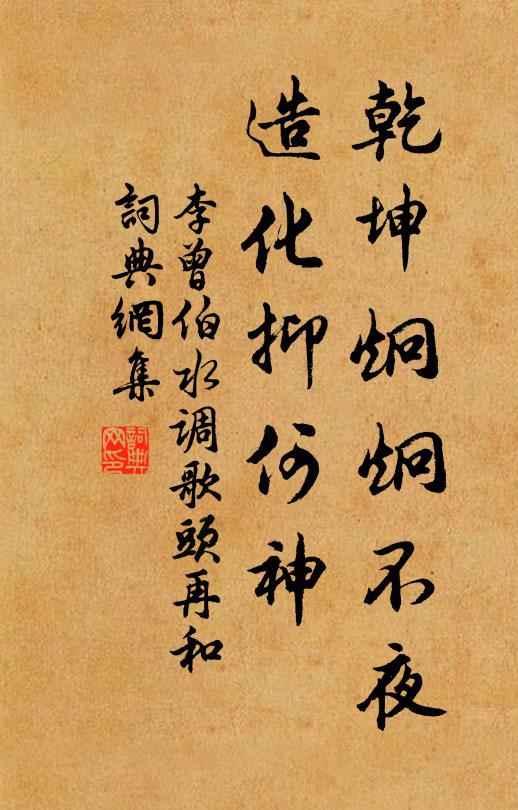 乾坤炯炯不夜
造化抑何神
李曾伯水调歌頭再和
詞典網集
詞典网印